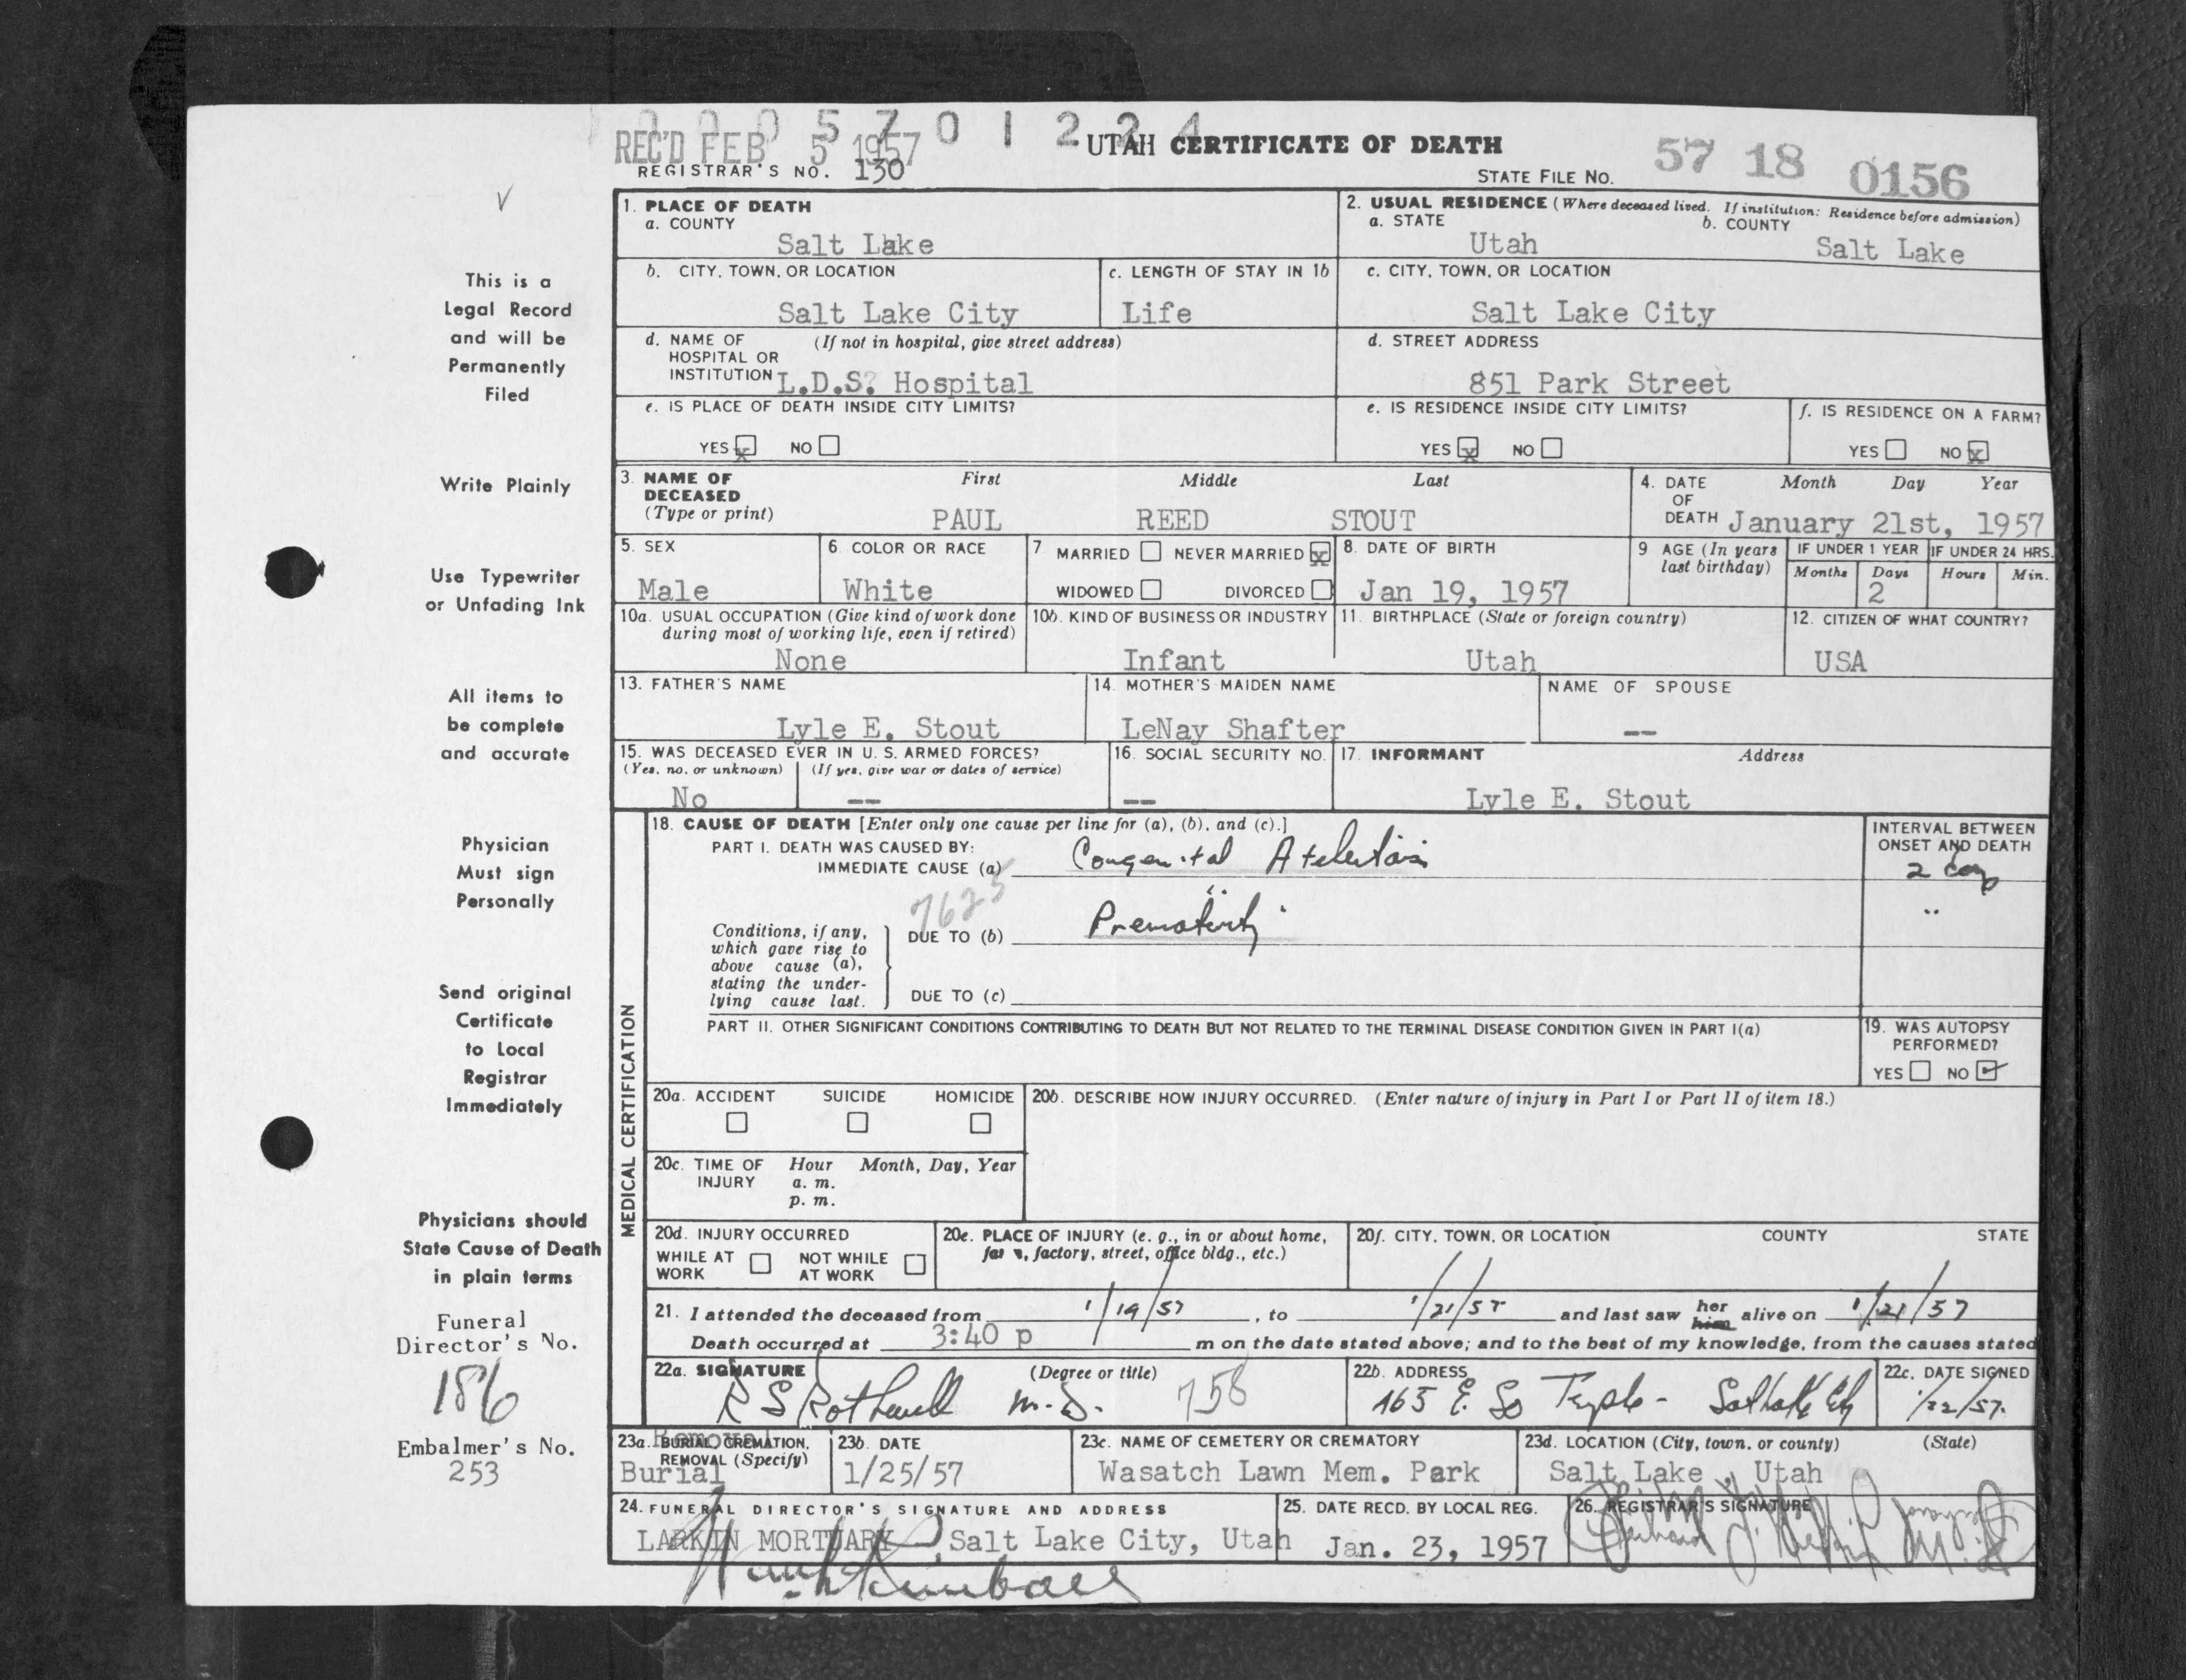 0 0 0 5 7 0 1 2 2 4
REC'D FEB 5 1957
UTAH CERTIFICATE OF DEATH
REGISTRAR'S NO. 130
STATE FILE NO. 57 18 0156
1. PLACE OF DEATH
a. COUNTY
Salt Lake
2. USUAL RESIDENCE (Where deceased lived. If institution: Residence before admission)
a. STATE
b. COUNTY
Utah
Salt Lake
b. CITY, TOWN, OR LOCATION
Salt Lake City
c. LENGTH OF STAY IN 1b
Life
c. CITY, TOWN, OR LOCATION
Salt Lake City
d. NAME OF (If not in hospital, give street address)
HOSPITAL OR
INSTITUTION L.D.S? Hospital
d. STREET ADDRESS
851 Park Street
e. IS PLACE OF DEATH INSIDE CITY LIMITS?
YES x NO
e. IS RESIDENCE INSIDE CITY LIMITS?
YES x NO
f. IS RESIDENCE ON A FARM?
YES NO x
3. NAME OF First Middle Last
DECEASED
(Type or print)
PAUL REED STOUT
4. DATE Month Day Year
OF
DEATH January 21st, 1957
5. SEX
Male
6. COLOR OR RACE
White
7 MARRIED NEVER MARRIED x
WIDOWED DIVORCED
8. DATE OF BIRTH
Jan 19, 1957
9 AGE (In years
last birthday)
IF UNDER 1 YEAR
Months Days
2
IF UNDER 24 HRS.
Hours Min.
10a. USUAL OCCUPATION (Give kind of work done
during most of working life, even if retired)
None
10b. KIND OF BUSINESS OR INDUSTRY
Infant
11. BIRTHPLACE (State or foreign country)
Utah
12. CITIZEN OF WHAT COUNTRY?
USA
13. FATHER'S NAME
Lyle E. Stout
14. MOTHER'S MAIDEN NAME
LeNay Shafter
NAME OF SPOUSE
--
15. WAS DECEASED EVER IN U. S. ARMED FORCES?
(Yes, no, or unknown) (If yes, give war or dates of service)
No --
16. SOCIAL SECURITY NO.
--
17. INFORMANT Address
Lyle E. Stout
MEDICAL CERTIFICATION
18. CAUSE OF DEATH [Enter only one cause per line for (a), (b), and (c).]
PART I. DEATH WAS CAUSED BY:
IMMEDIATE CAUSE (a) Congenital Atelectasis
INTERVAL BETWEEN
ONSET AND DEATH
2 days
7625
Conditions, if any,
which gave rise to
above cause (a),
stating the under-
lying cause last.
DUE TO (b) Prematurity "
DUE TO (c)
PART II. OTHER SIGNIFICANT CONDITIONS CONTRIBUTING TO DEATH BUT NOT RELATED TO THE TERMINAL DISEASE CONDITION GIVEN IN PART I(a)
19. WAS AUTOPSY
PERFORMED?
YES NO ✓
20a. ACCIDENT SUICIDE HOMICIDE
20b. DESCRIBE HOW INJURY OCCURRED. (Enter nature of injury in Part I or Part II of item 18.)
20c. TIME OF Hour Month, Day, Year
INJURY a. m.
p. m.
20d. INJURY OCCURRED
WHILE AT NOT WHILE
WORK AT WORK
20e. PLACE OF INJURY (e. g., in or about home,
farm, factory, street, office bldg., etc.)
20f. CITY, TOWN, OR LOCATION COUNTY STATE
21. I attended the deceased from 1/19/57, to 1/21/57 and last saw her him alive on 1/21/57
Death occurred at 3:40 p m on the date stated above; and to the best of my knowledge, from the causes stated
22a. SIGNATURE (Degree or title)
R S Rothwell M.D. 758
22b. ADDRESS
165 E. So Temple - Salt Lake City
22c. DATE SIGNED
1/22/57.
23a. BURIAL, CREMATION,
REMOVAL (Specify)
Removal
Burial
23b. DATE
1/25/57
23c. NAME OF CEMETERY OR CREMATORY
Wasatch Lawn Mem. Park
23d. LOCATION (City, town, or county) (State)
Salt Lake, Utah
24. FUNERAL DIRECTOR'S SIGNATURE AND ADDRESS
LARKIN MORTUARY, Salt Lake City, Utah
25. DATE RECD. BY LOCAL REG.
Jan. 23, 1957
26. REGISTRAR'S SIGNATURE
This is a
Legal Record
and will be
Permanently
Filed
Write Plainly
Use Typewriter
or Unfading Ink
All items to
be complete
and accurate
Physician
Must sign
Personally
Send original
Certificate
to Local
Registrar
Immediately
Physicians should
State Cause of Death
in plain terms
Funeral
Director's No.
186
Embalmer's No.
253